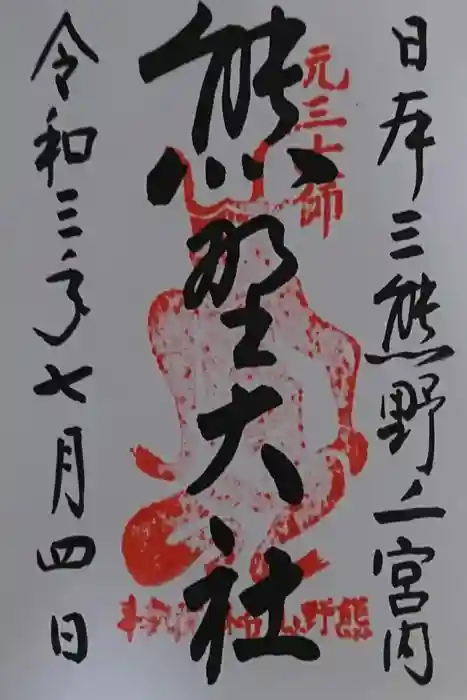 日本三熊野ノ一宮内
元三大師
熊野大社
令和三年七月四日
熊野